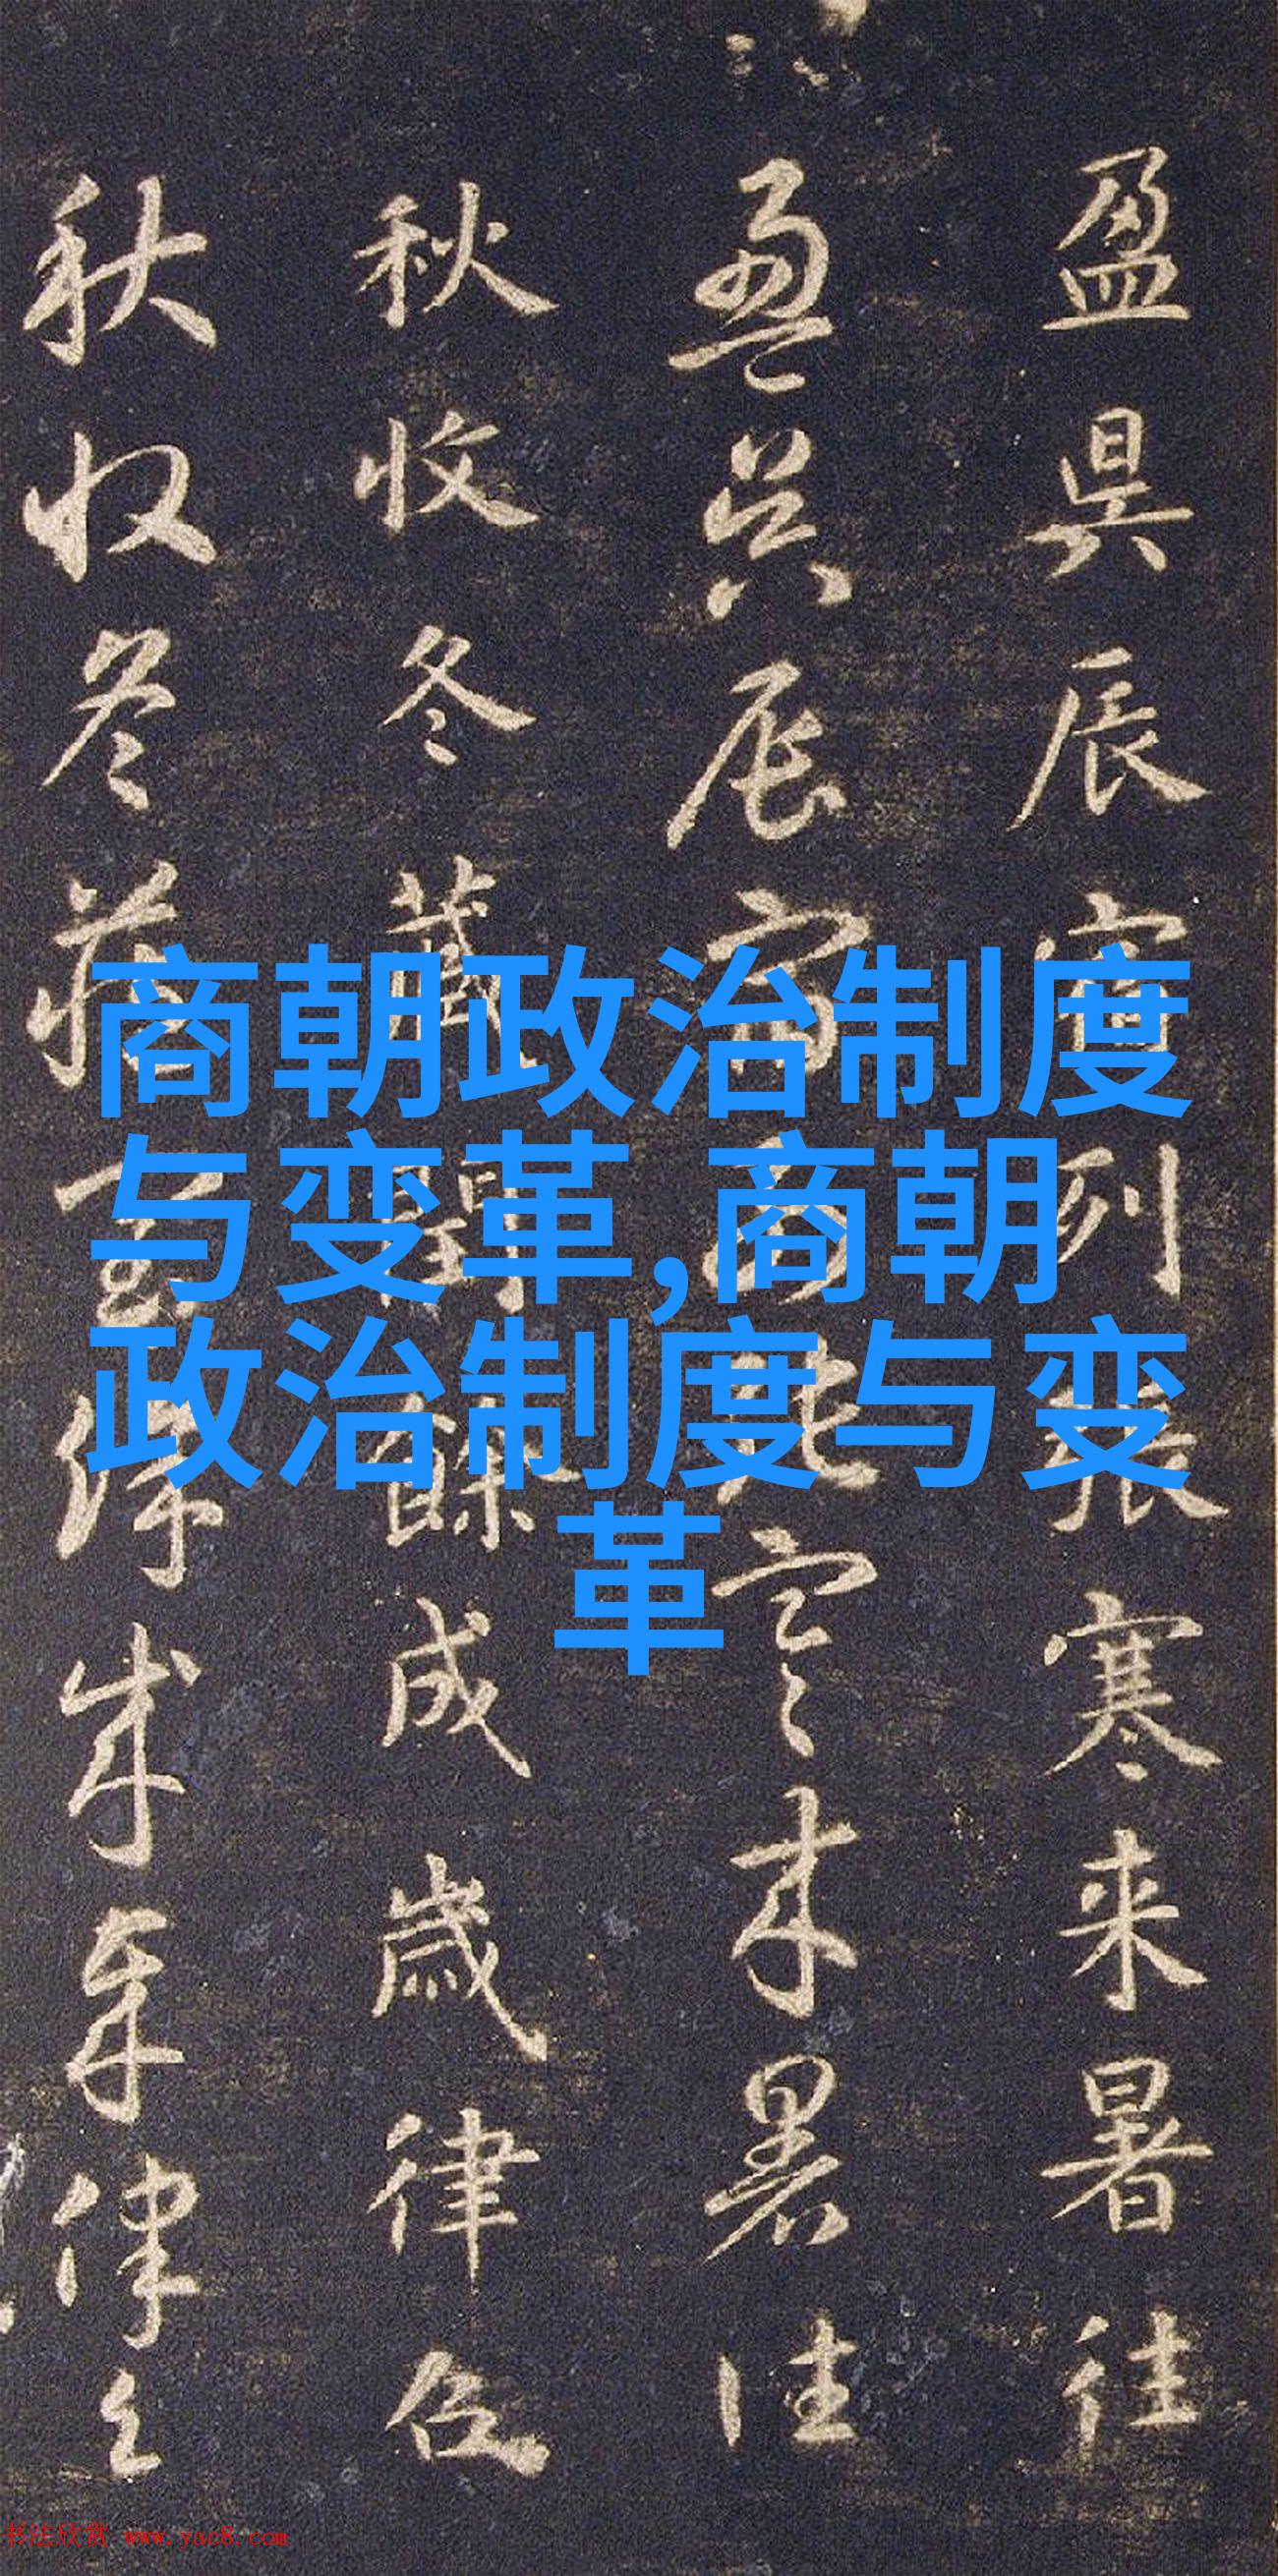 盈昃辰宿列張寒来暑往
盈昃辰宿列張寒来暑往
秋收冬藏閏餘成歲律召
秋收冬藏閏餘成歲律召
商朝政治制度
与变革,商朝
政治制度与变
革
书法欣赏 www.yac8.com